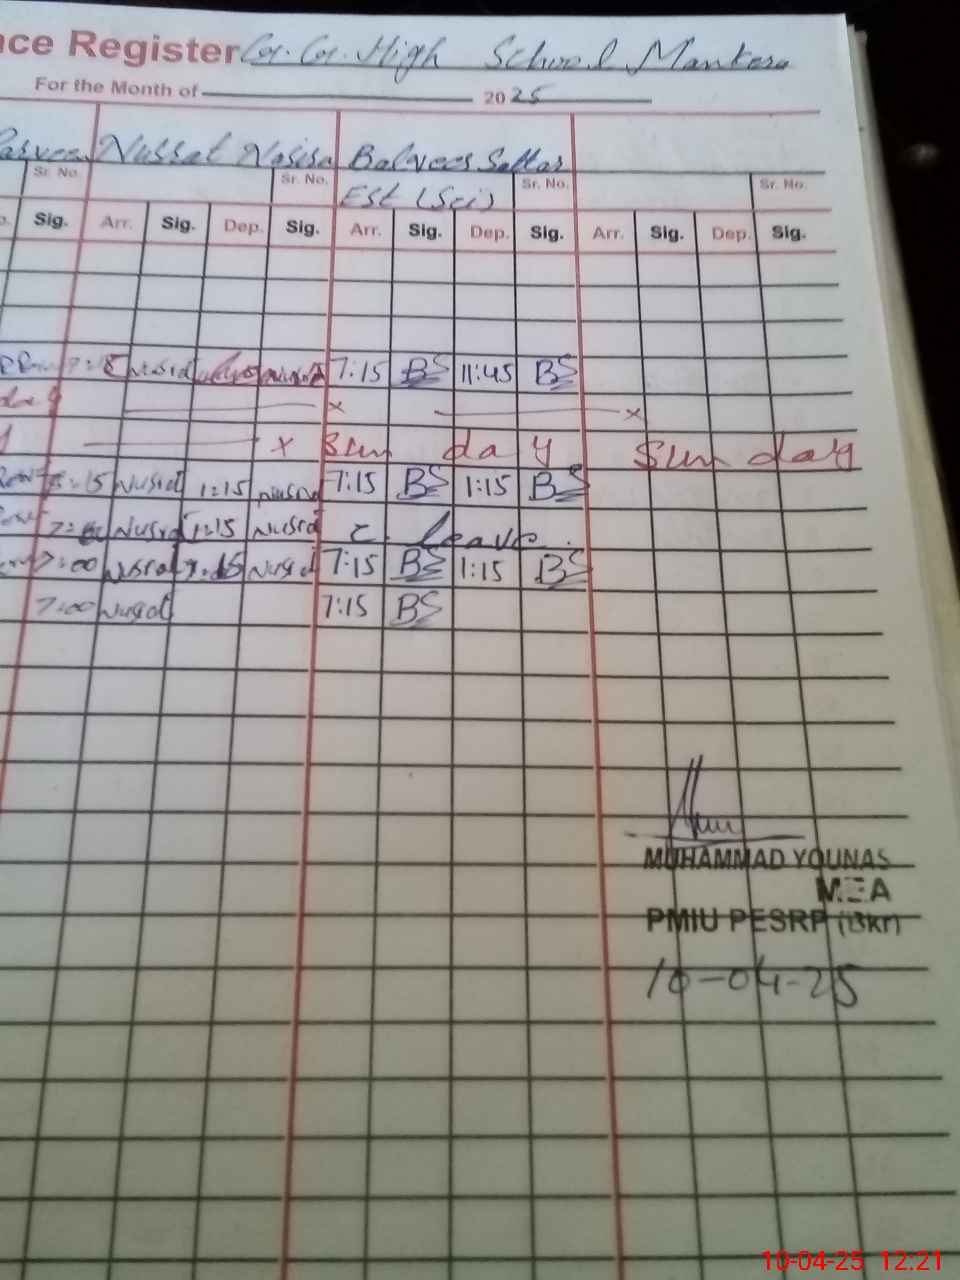 nce Register G. G. High School Mankera
For the Month of 2025
Parveen Nussat Nasisa Balqees Sattar
Sr. No. Sr. No. EST (Sci) Sr. No. Sr. No.
Sig. Arr. Sig. Dep. Sig. Arr. Sig. Dep. Sig. Arr. Sig. Dep. Sig.
7:15 BS 11:45 BS
x x
x Sun da y Sun day
8:15 Nusrd 1:15 Nusrd 7:15 BS 1:15 BS
Nusrd 1:15 Nusrd C. leave.
7:00 Nusrd Nusrd 7:15 BS 1:15 BS
7:00 Nusrd 7:15 BS
MUHAMMAD YOUNAS
MEA
PMIU PESRP (Bkr)
10-04-25
10-04-25 12:21